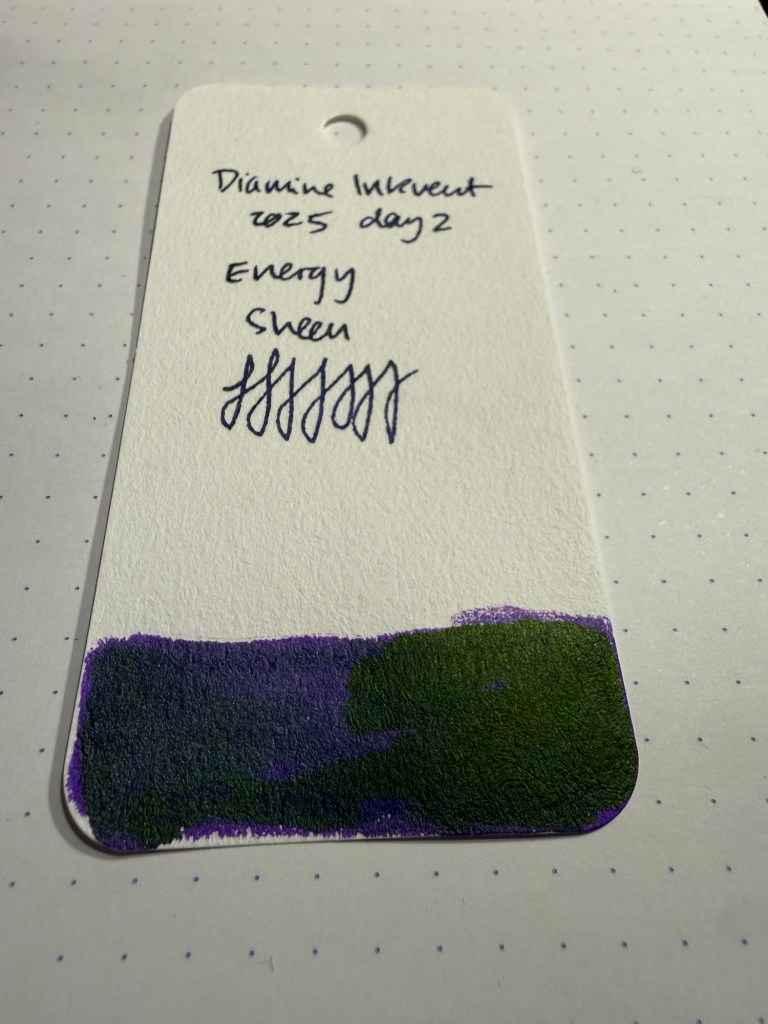 Diamine Inkvent
2025 day 2
Energy
Sheen